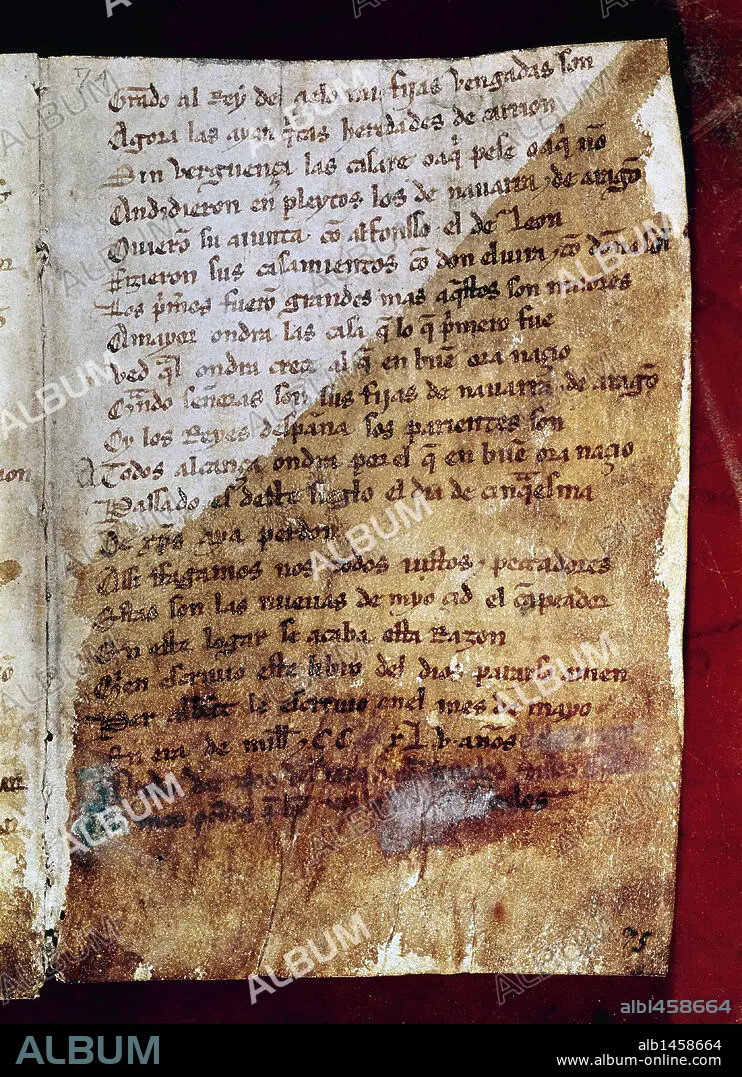 Grado al Rey del çielo mis fijas vengadas son
Agora las ayan q̃tas heredades de carrion
Sin verguença las casare oaq̃ pese oaq̃ nõ
Andidieron en pleytos los de nauarra ⁊ de aragõ
Ouierõ su aiunta cõ alfonsso el de Leon
Fizieron sus casamientos cõ don eluira ⁊ cõ doña sol
Los p̃meros fuerõ grandes mas aq̃stos son miiores
A mayor ondra las casa q̃ lo q̃ p̃mero fue
Ved q̃l ondra creçe al q̃ en buẽ ora naçio
Q̃ndo señoras son sus fijas de nauarra ⁊ de aragõ
Oy los Reyes despaña sos parientes son
A Todos alcança ondra por el q̃ en buẽ ora naçio
Passado es deste sieglo el dia de cinq̃esma
De xp̃s aya perdon
Assi ffagamos nos todos iustos ⁊ peccadores
Estas son las nueuas de myo çid el canpeador
En este logar se acaba esta Razon
Quien escriuio este libro del dios parayso amen
Per abbat le escriuio enel mes de mayo
En era de mill ⁊ CC xL v años
75
ALBUM
alb1458664
ALBUM
alb1458664
www.album-online.com